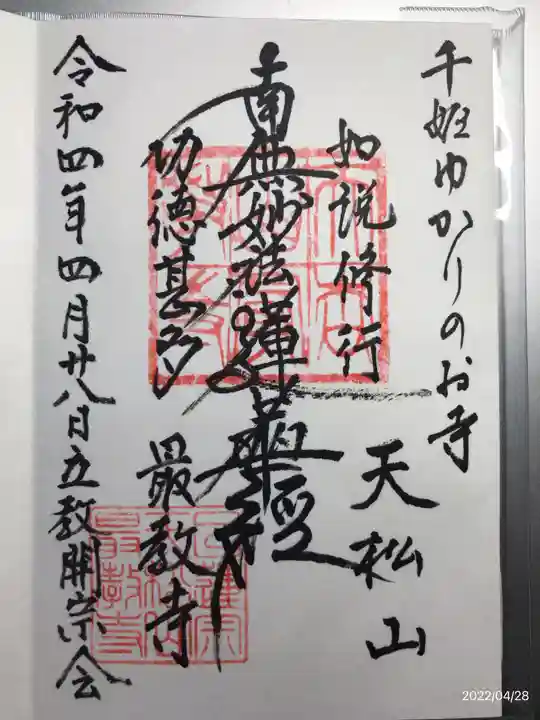 千姫ゆかりのお寺
天松山
如説修行
南無妙法蓮華経
功徳甚多
最教寺
令和四年四月廿八日立教開宗会
2022/04/28